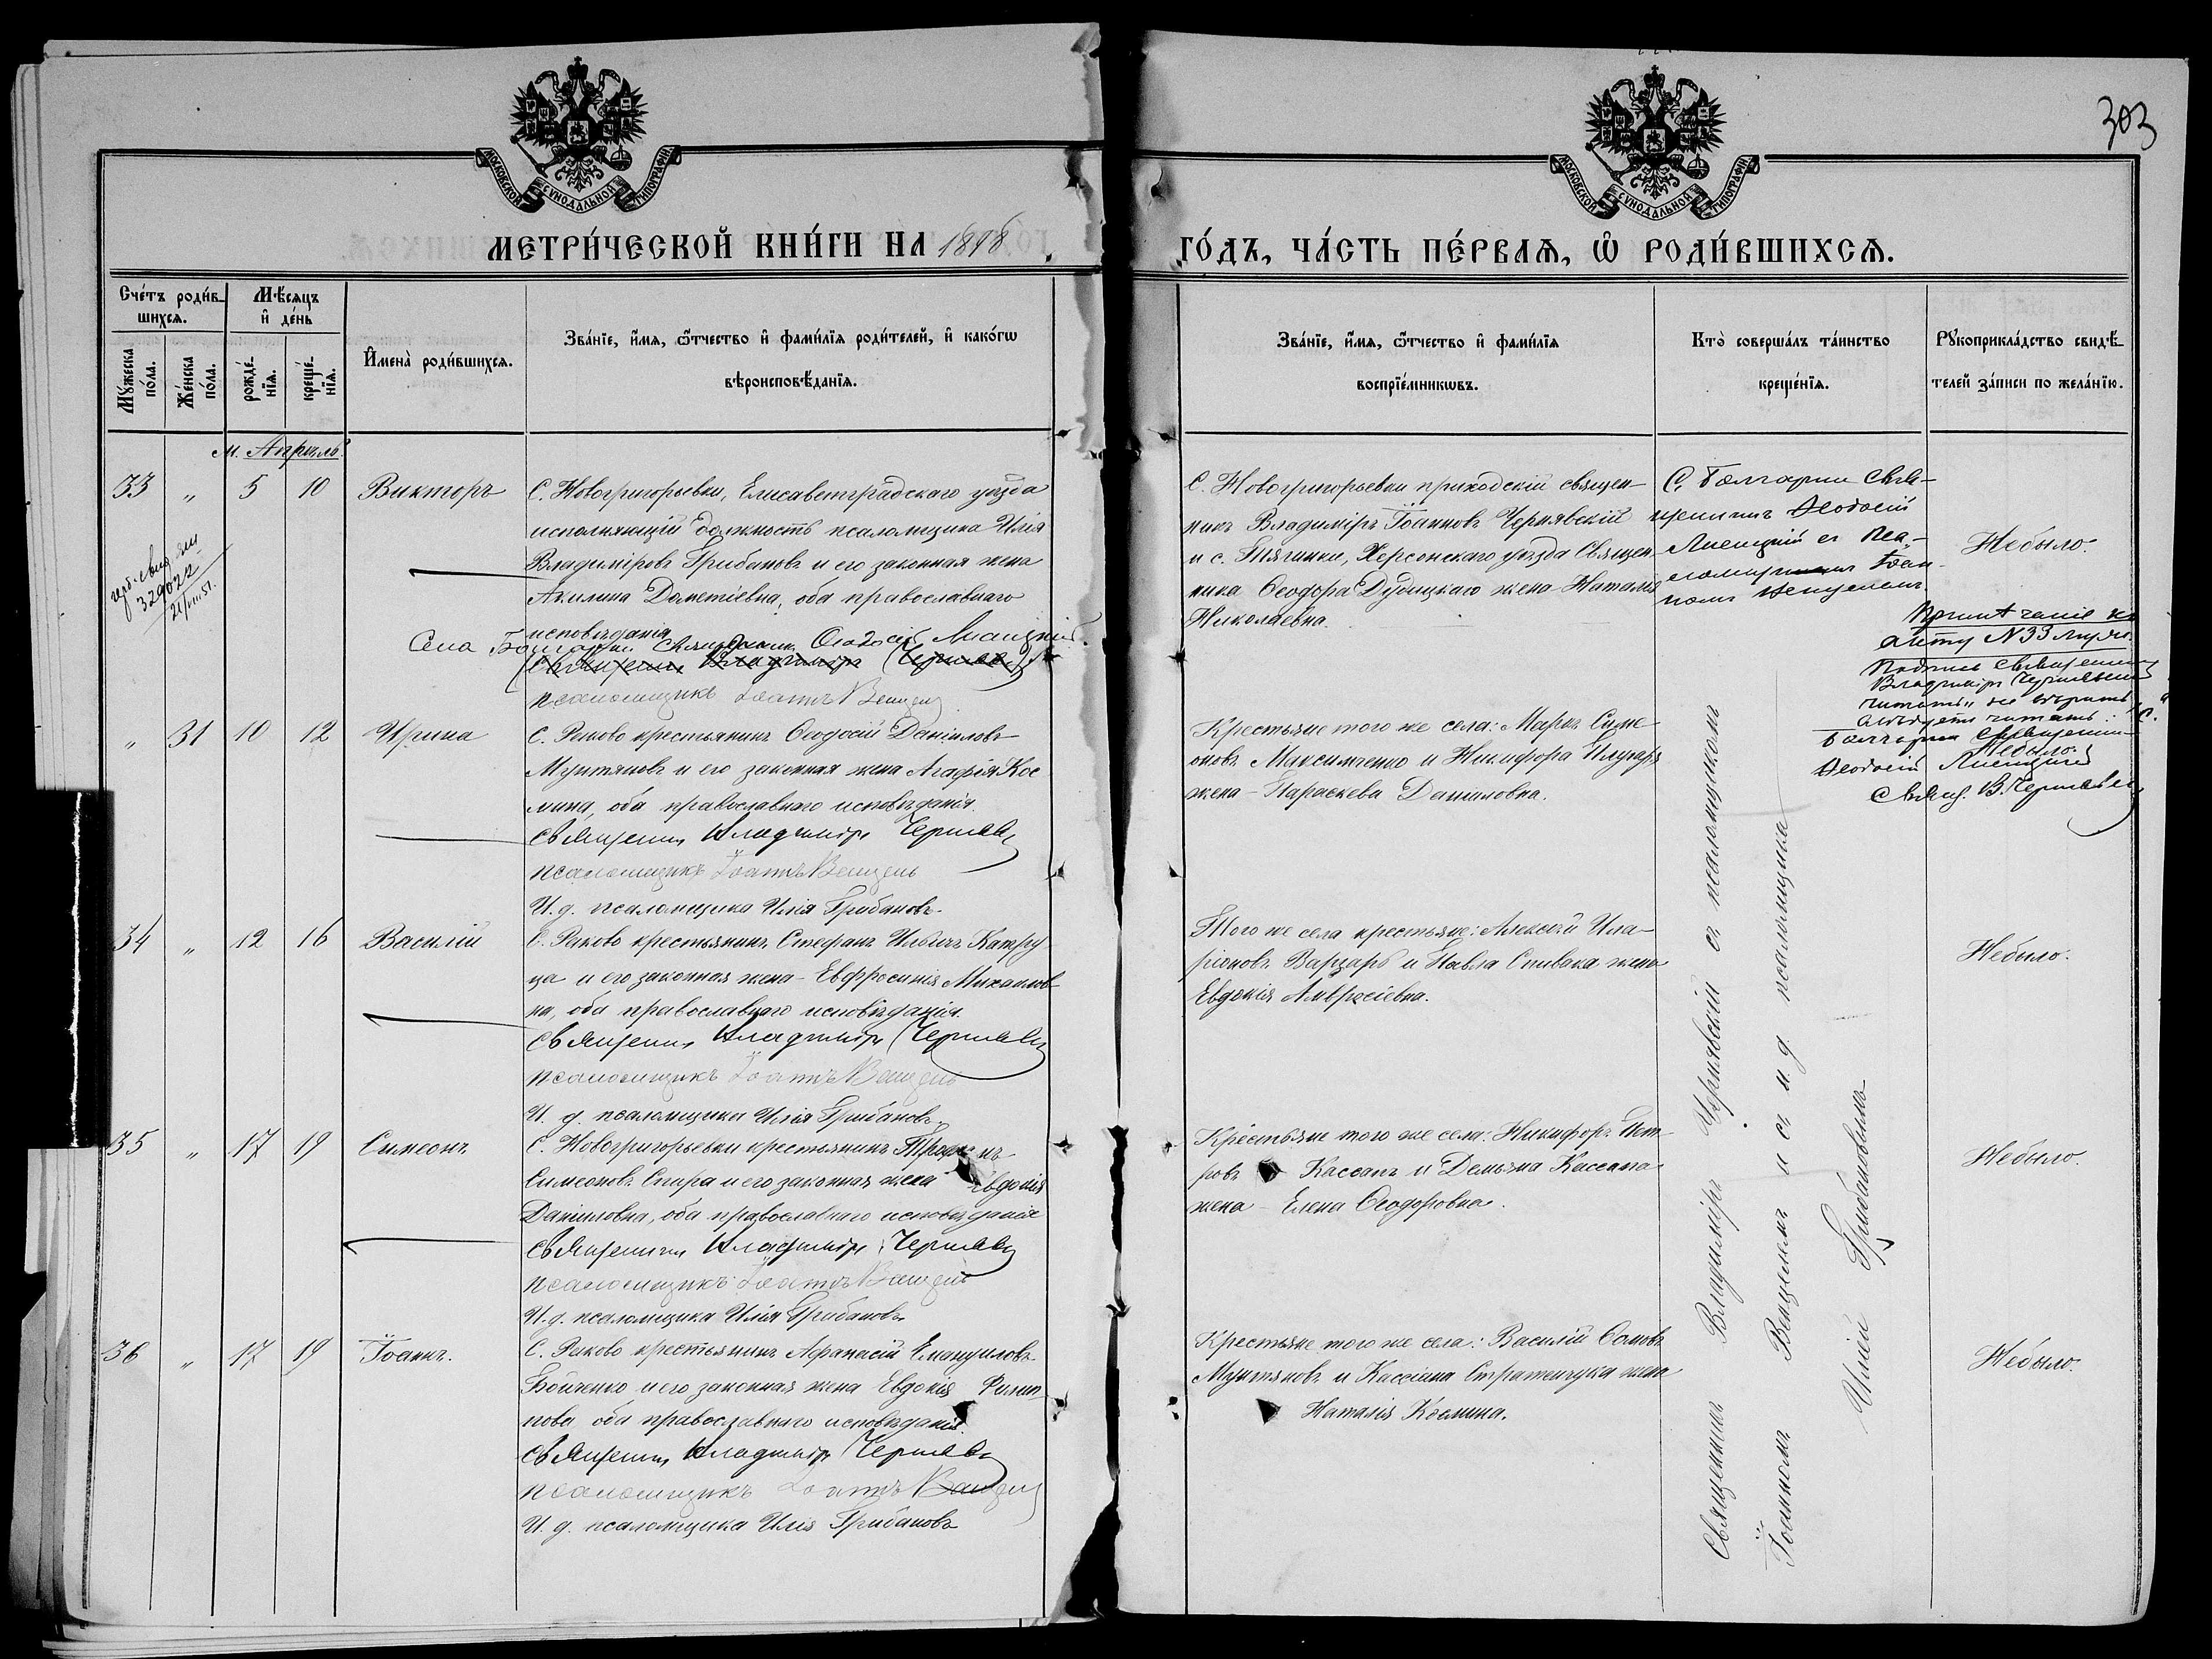 303
МОСКОВСКОЙ СѴНОДАЛЬНОЙ ТИПОГРАФІИ
МОСКОВСКОЙ СѴНОДАЛЬНОЙ ТИПОГРАФІИ
МЕТРИ́ЧЕСКОЙ КНИ́ГИ НА 1898
ГО́ДЪ, ЧА́СТЬ ПЕ́РВАѦ, Ѡ҆ РОДИ́ВШИХСѦ.
Сче́тъ роди́в-
шихсѧ.
Мꙋ́жеска по́ла.
Же́нска по́ла.
Мѣ́сѧцъ
и҆ де́нь
рожде́нїѧ.
креще́нїѧ.
И҆мена̀ роди́вшихсѧ.
Зва́нїе, и҆́мѧ, ѻ҆́тчество и҆ фами́лїѧ роди́телей, и҆ како́гѡ
вѣроисповѣ́данїѧ.
Зва́нїе, и҆́мѧ, ѻ҆́тчество и҆ фами́лїѧ
воспрїе́мникѡвъ.
Кто̀ соверша́лъ та́инство
креще́нїѧ.
Рꙋкоприкла́дство свидѣ́-
телей за́писи по жела́нїю.
м. Апрѣль.
33 „ 5 10 Викторъ
С. Новогригорьевки, Елисаветградскаго уѣзда
исполняющій должность псаломщика Илія
Владиміровъ Грибановъ и его законная жена
Акилина Дометіевна, оба православнаго
исповѣданія
Села Болгарки Священникъ Ѳеодосій Лисицкій
Священникъ Владиміръ Черняв
псаломщикъ Іоаннъ Венцель
329022
21/VIII 51.
С. Новогригорьевки приходскій священ-
никъ Владиміръ Іоанновъ Чернявскій
и с. Тягинки, Херсонскаго уѣзда Священ-
ника Ѳеодора Дубицкаго жена Наталія
Николаевна.
С. Болгарки Свя-
щенникъ Ѳеодосій
Лисицкій съ Пса-
ломщикомъ Іоан-
номъ Венцелемъ.
Небыло.
Примѣчаніе къ
акту N 33 муж.
Подпись Священника
Владиміръ Чернявскій
читать и не вѣрить, а
слѣдуетъ читать: С.
Болгарки Священникъ
Ѳеодосій Лисицкій
Свящ. В. Чернявскій
„ 31 10 12 Ирина
С. Раково крестьянинъ Ѳеодосій Даніиловъ
Мунтяновъ и его законная жена Агафія Кос
мина, оба православнаго исповѣданія.
Священникъ Владиміръ Черняв
псаломщикъ Іоаннъ Венцель
И. д. псаломщика Илія Грибановъ.
Крестьяне того же села: Маркъ Симе-
оновъ Максименко и Никифора
жена - Параскева Даниловна.
Небыло.
34 „ 12 16 Василій
С. Раково крестьянинъ Стефанъ Ильичъ Катру
ца и его законная жена - Евфросинія Михаилов-
на, оба православнаго исповѣданія.
Священникъ Владиміръ Черняв
псаломщикъ Іоаннъ Венцель
И. д. псаломщика Илія Грибановъ.
Того же села крестьяне: Алексѣй Ила-
ріоновъ Варцаръ и Павла Спивака жена
Евдокія Амвросіевна.
Небыло.
35 „ 17 19 Симеонъ
С. Новогригорьевки крестьянинъ
Симеоновъ Спира и его законная жена Евдокія
Данииловна, оба православнаго исповѣданія
Священникъ Владиміръ Черняв
псаломщикъ Іоаннъ Венцель
И. д. псаломщика Илія Грибановъ
Крестьяне того же села: Никифоръ Пет
ровъ Кассапъ и Демьяна Кассапа
жена - Елена Ѳеодоровна.
Небыло.
36 „ 17 19 Іоаннъ.
С. Раково крестьянинъ Афанасій Емануиловъ
Бойченко и его законная жена Евдокія Филип-
пова оба православнаго исповѣданія.
Священникъ Владиміръ Черняв
псаломщикъ Іоаннъ Венцель
И. д. псаломщика Илія Грибановъ
Крестьяне того же села: Василій
Мунтяновъ и Кассіана Стратенчука жена
Наталія Космина.
Небыло.
Священникъ Владиміръ Чернявскій съ псаломщикомъ
Іоанномъ Венцелемъ и съ и. д. псаломщика
Иліей Грибановымъ